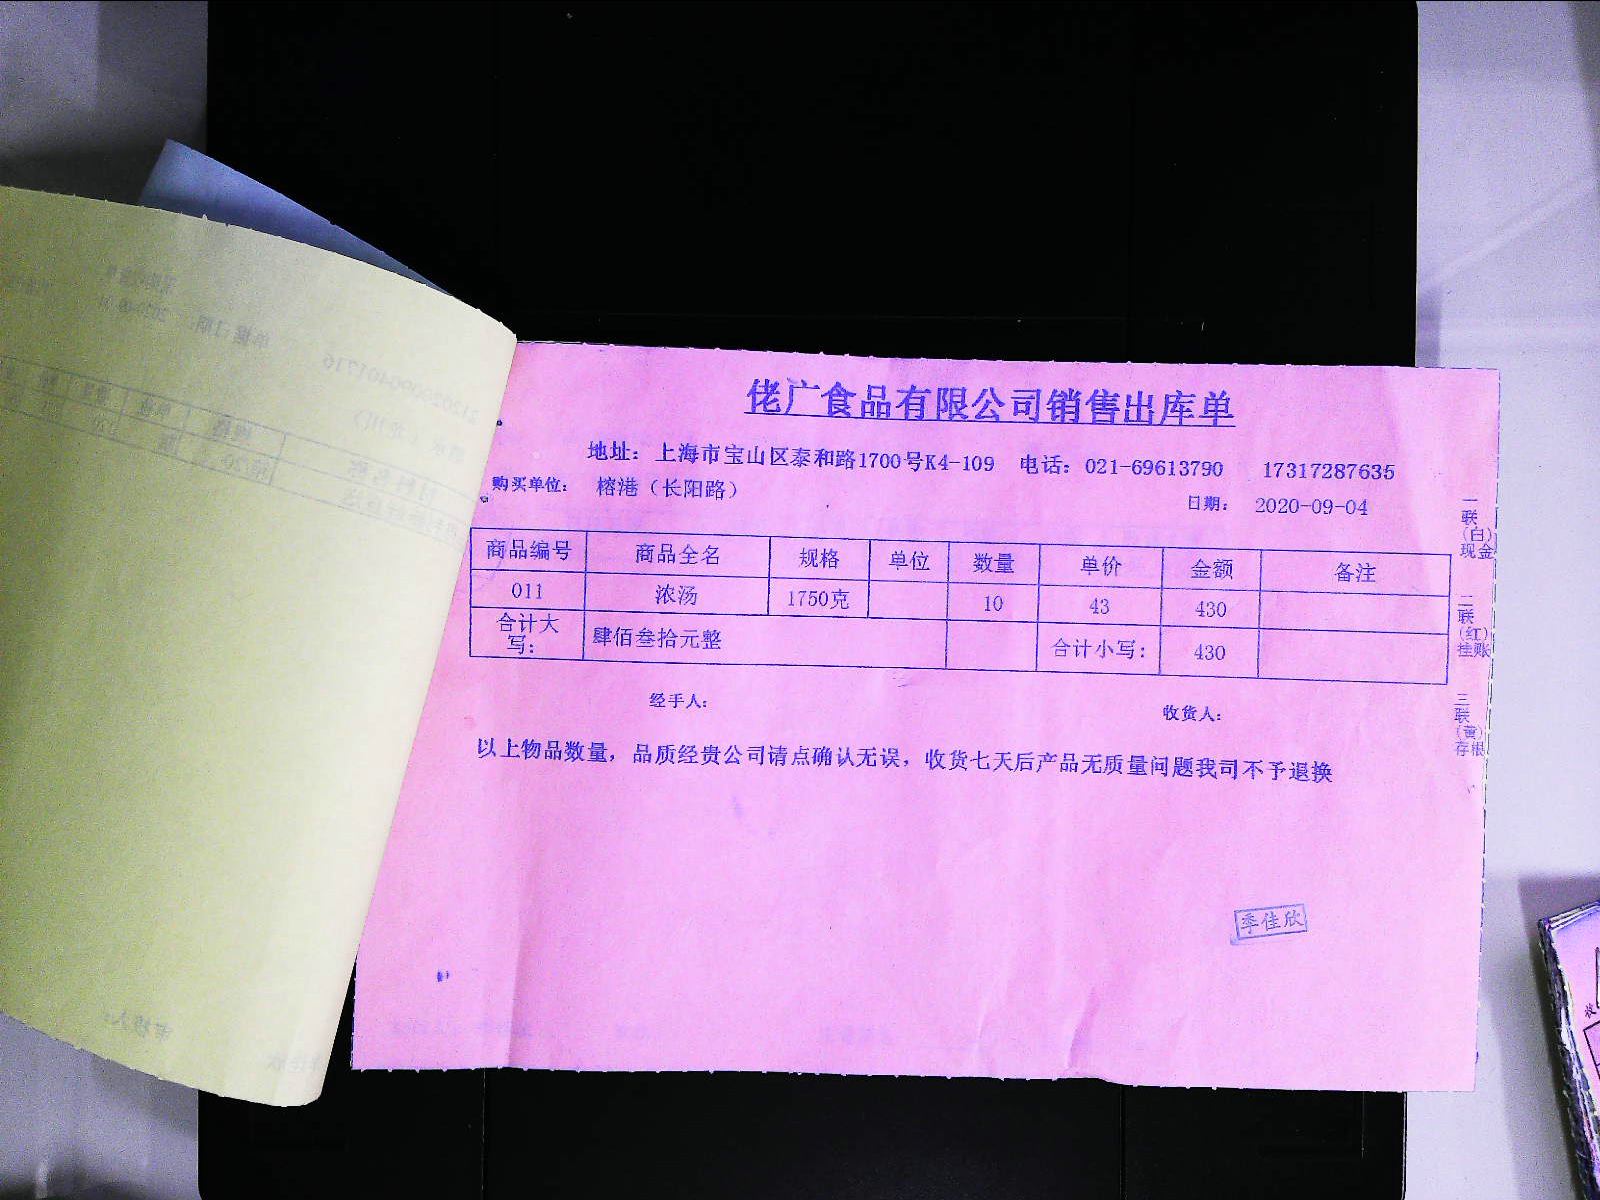 佬广食品有限公司销售出库单
地址：上海市宝山区泰和路1700号K4-109 电话：021-69613790 17317287635
购买单位： 榕港（长阳路） 日期： 2020-09-04
商品编号 商品全名 规格 单位 数量 单价 金额 备注
011 浓汤 1750克 10 43 430
合计大写： 肆佰叁拾元整 合计小写： 430
经手人： 收货人：
以上物品数量，品质经贵公司请点确认无误，收货七天后产品无质量问题我司不予退换
一联（白）现金
二联（红）挂账
三联（黄）存根
季佳欣